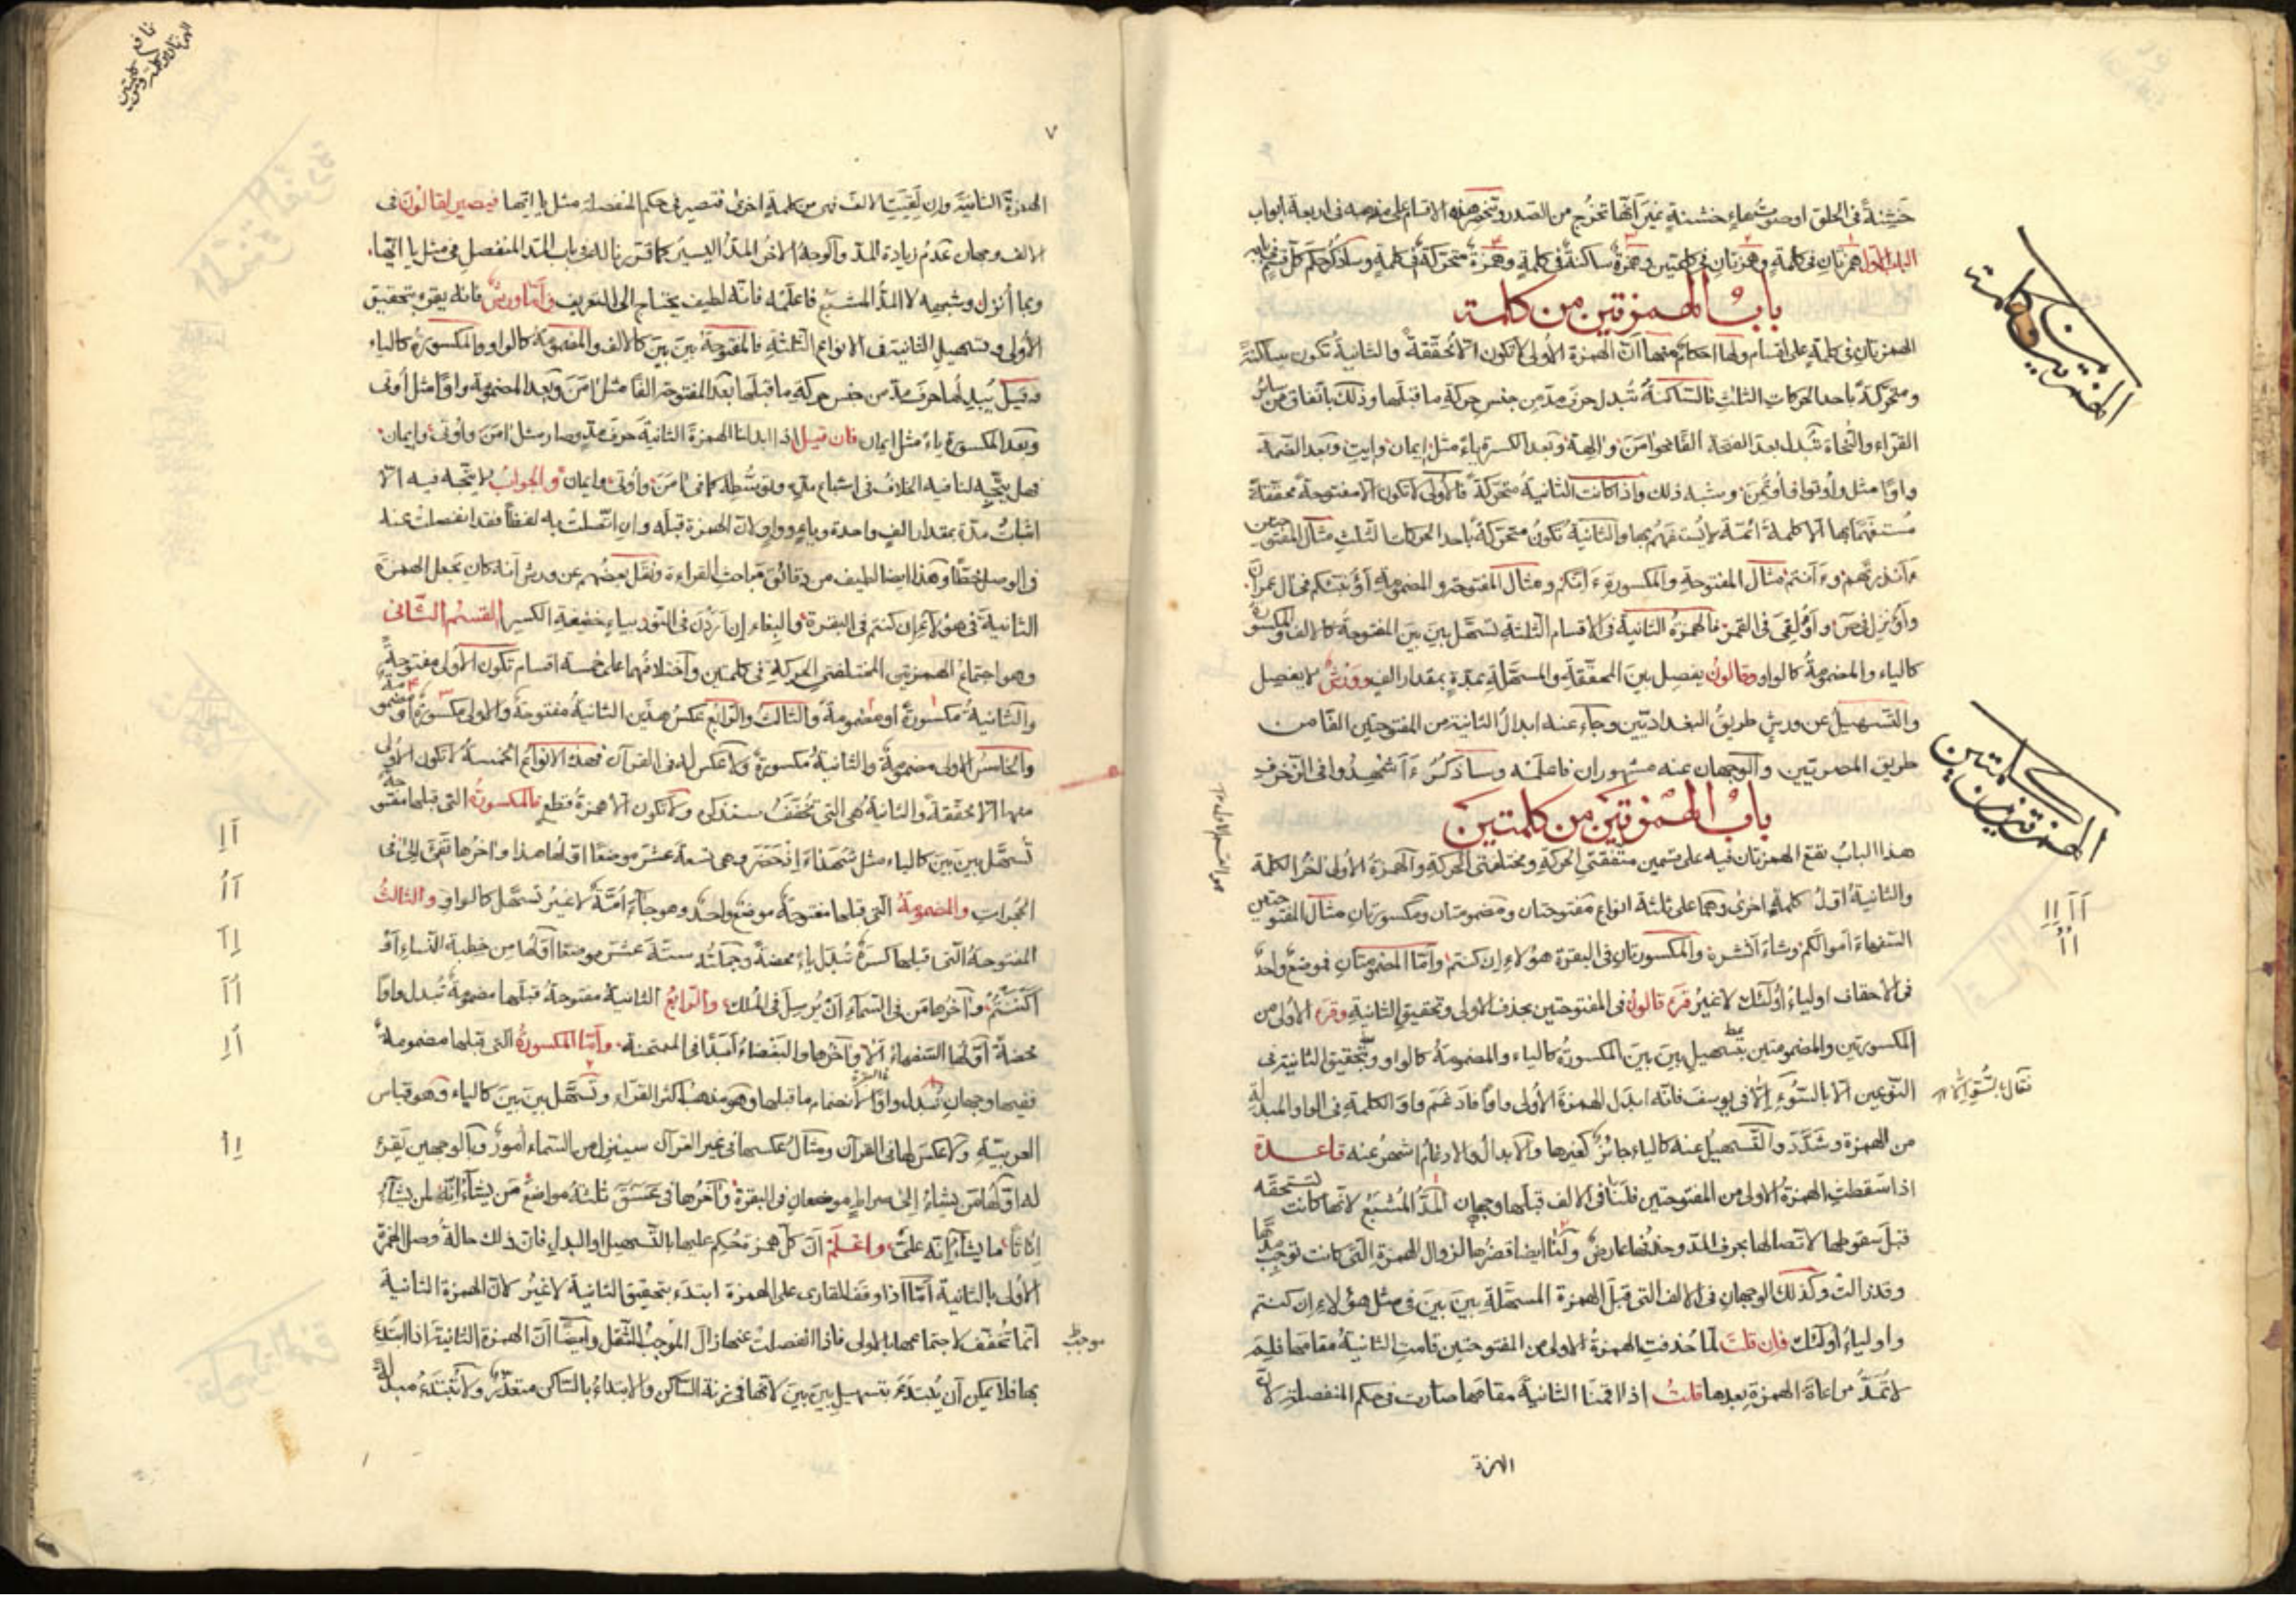 خشنة في الحلق او صوتها خشنة غير انها تخرج من الصدر وتنحصر هذه الاقسام على مذهبه في اربعة ابواب
الباب الاول همزتان في كلمة وهمزتان في كلمتين وهمزة ساكنة في كلمة وهمزة متحركة في كلمة وسأذكر حكم كل قسم
باب الهمزتين من كلمة
الهمزتان في كلمة على اقسام ولها احكام منها ان الهمزة الاولى لا تكون الا محققة والثانية تكون ساكنة
ومتحركة باحد الحركات الثلاث فالساكنة تبدل حرف مد من جنس حركة ما قبلها وذلك باتفاق من سائر
القراء والنحاة تبدل بعد الفتحة الفا نحو امن والهة وبعد الكسرة ياء مثل ايمان وايت وبعد الضمة
واوا مثل واوتوا واوتمن وشبه ذلك واذا كانت الثانية متحركة فالاولى لا تكون الا مفتوحة محققة
مستفهما بها الا كلمة ائمة لا يستفهم بها والثانية تكون متحركة باحد الحركات الثلث مثال المفتوحتين
ءانذرتهم وءانتم مثال المفتوحة والمكسورة ءانكم ومثال المفتوحة والمضمومة اؤنبئكم في ال عمران
واؤنزل في ص واؤلقي في القمر فالهمزة الثانية في الاقسام الثلثة تسهل بين بين المفتوحة كالالف والمكسورة
كالياء والمضمومة كالواو وقالون يفصل بين المحققة والمسهلة بمدة بمقدار الف وورش لا يفصل
والتسهيل عن ورش طريق البغداديين وجاء عنه ابدال الثانية من المفتوحتين الفا من
طريق المصريين والوجهان عنه مشهوران فاعلمه وسأذكر ءاشهدوا في الزخرف
باب الهمزتين من كلمتين
هذا الباب تقع الهمزتان فيه على قسمين متفقتي الحركة ومختلفتي الحركة والهمزة الاولى اخر الكلمة
والثانية اول كلمة اخرى وهما على ثلثة انواع مفتوحتان ومضمومتان ومكسورتان مثال المفتوحتين
السفهاء اموالكم وشاء انشره والمكسورتان في البقرة هؤلاء ان كنتم واما المضمومتان فموضع واحد
في الاحقاف اولياء اولئك لا غير قرء قالون في المفتوحتين بحذف الاولى وتحقيق الثانية وقرء الاولى من
المكسورتين والمضمومتين بتسهيل بين بين المكسورة كالياء والمضمومة كالواو وتحقيق الثانية في
النوعين الا بالسوء الا في يوسف فانه ابدل الهمزة الاولى واوا فادغم واو الكلمة في الواو المبدلة
من الهمزة وشدد والتسهيل عنه كالياء جائز كغيرها والابدال والادغام اشهر عنه قاعدة
اذا سقطت الهمزة الاولى من المفتوحتين فلنا في الالف قبلها وجهان المد المشبع لانها كانت تستحقه
قبل سقوطها لاتصالها بحرف المد وحذفها عارض ولنا ايضا قصرها لزوال الهمزة التي كانت توجب مدها
وقد زالت وكذلك الوجهان في الالف التي قبل الهمزة المسهلة بين بين في مثل هؤلاء ان كنتم
واولياء اولئك فان قلت لما حذفت الهمزة الاولى من المفتوحتين قامت الثانية مقامها فلم
لا تمد مراعاة الهمزة بعدها قلت اذا اقمنا الثانية مقامها صارت في حكم المنفصلة لان
الهمزة
الهمزتين من كلمة
الهمزتين من كلمتين
٧
الهمزة الثانية وان لقيت الالف فهي من كلمة اخرى فتصير في حكم المنفصلة مثل يا ايها فيصير لقالون في
الالف وجهان عدم زيادة المد والوجه الاخر المد اليسير كما قرر ناله في باب المد المنفصل في مثل يا ايها
وبما انزل وشبهه لا المد المشبع فاعلمه فانه لطيف يحتاج الى التعريف واما ورش فانه يقرء بتحقيق
الاولى وتسهيل الثانية في الانواع الثلثة فالمفتوحة بين بين كالالف والمضمومة كالواو والمكسورة كالياء
وقيل يبدلها حرف مد من جنس حركة ما قبلها بعد المفتوحة الفا مثل امن وبعد المضمومة واوا مثل اوتى
وبعد المكسورة ياء مثل ايمان فان قيل اذا ابدلنا الهمزة الثانية حرف مد وصار مثل امن واوتى وايمان
فهل يتجه لنا فيه الخلاف في اشباع مده وتوسطه كما في امن واوتى وايمان والجواب لا يتجه فيه الا
اثبات مدة بمقدار الف واحدة وياء وواو لان الهمزة قبله وان اتصلت به لفظا فقد انفصلت عنه
في الوصل خطا وهذا ايضا لطيف من دقائق مباحث القراءة ونقل بعضهم عن ورش انه كان يجعل الهمزة
الثانية في هؤلاء ان كنتم في البقرة والبغاء ان اردن في النور بياء خفيفة الكسر القسم الثاني
وهو اجتماع الهمزتين المختلفتي الحركة في كلمتين واختلافهما على خمسة اقسام تكون الاولى مفتوحة
والثانية مكسورة او مضمومة والثالث والرابع عكس هذين الثانية مفتوحة والاولى مكسورة او مضمومة
والخامس الاولى مضمومة والثانية مكسورة ولا عكس له في القرآن فهذه الانواع الخمسة لا تكون الاولى
منها الا محققة والثانية هي التي تخفف ستذكر ولا تكون الا همزة قطع فالمكسورة التي قبلها مفتوحة
تسهل بين بين كالياء مثل شهداء اذ حضر وهي تسعة عشر موضعا اولها هذا واخرها تفيء الى في
الحجرات والمضمومة التي قبلها مفتوحة موضع واحد وهو جاء امة لا غير تسهل كالواو والثالث
المفتوحة التي قبلها كسرة تبدل ياء محضة وجملته ستة عشر موضعا اولها من خطبة النساء او
اكننتم واخرها من في السماء ان يرسل في الملك والرابع الثانية مفتوحة قبلها مضمومة تبدل واوا
محضة اولها السفهاء الا واخرها والبغضاء ابدا في الممتحنة واما المكسورة التي قبلها مضمومة
ففيها وجهان تبدل واوا لانضمام ما قبلها وهو مذهب اكثر القراء وتسهل بين بين كالياء وهو قياس
العربية ولا عكس لها في القرآن ومثال عكسها في غير القرآن سينزل من السماء امور وبالوجهين يقرء
له اولها من يشاء الى صراط موضعان في البقرة واخرها في عسق ثلثة مواضع من يشاء اناثا لمن يشاء
اناثا ما يشاء انه علي واعلم ان كل همزة حكم عليها بالتسهيل او البدل فان ذلك حالة وصل الهمزة
الاولى بالثانية اما اذا وقف القارى على الهمزة ابتدء بتحقيق الثانية لا غير لان الهمزة الثانية
انما تخفف لاجتماعها بالاولى فاذا انفصلت عنها زال الموجب للثقل وايضا ان الهمزة الثانية اذا ابتدء
بها فلا يمكن ان يبتدء بتسهيل بين بين لانها في زنة الساكن والابتداء بالساكن متعذر ولا تبتدء مبدلة